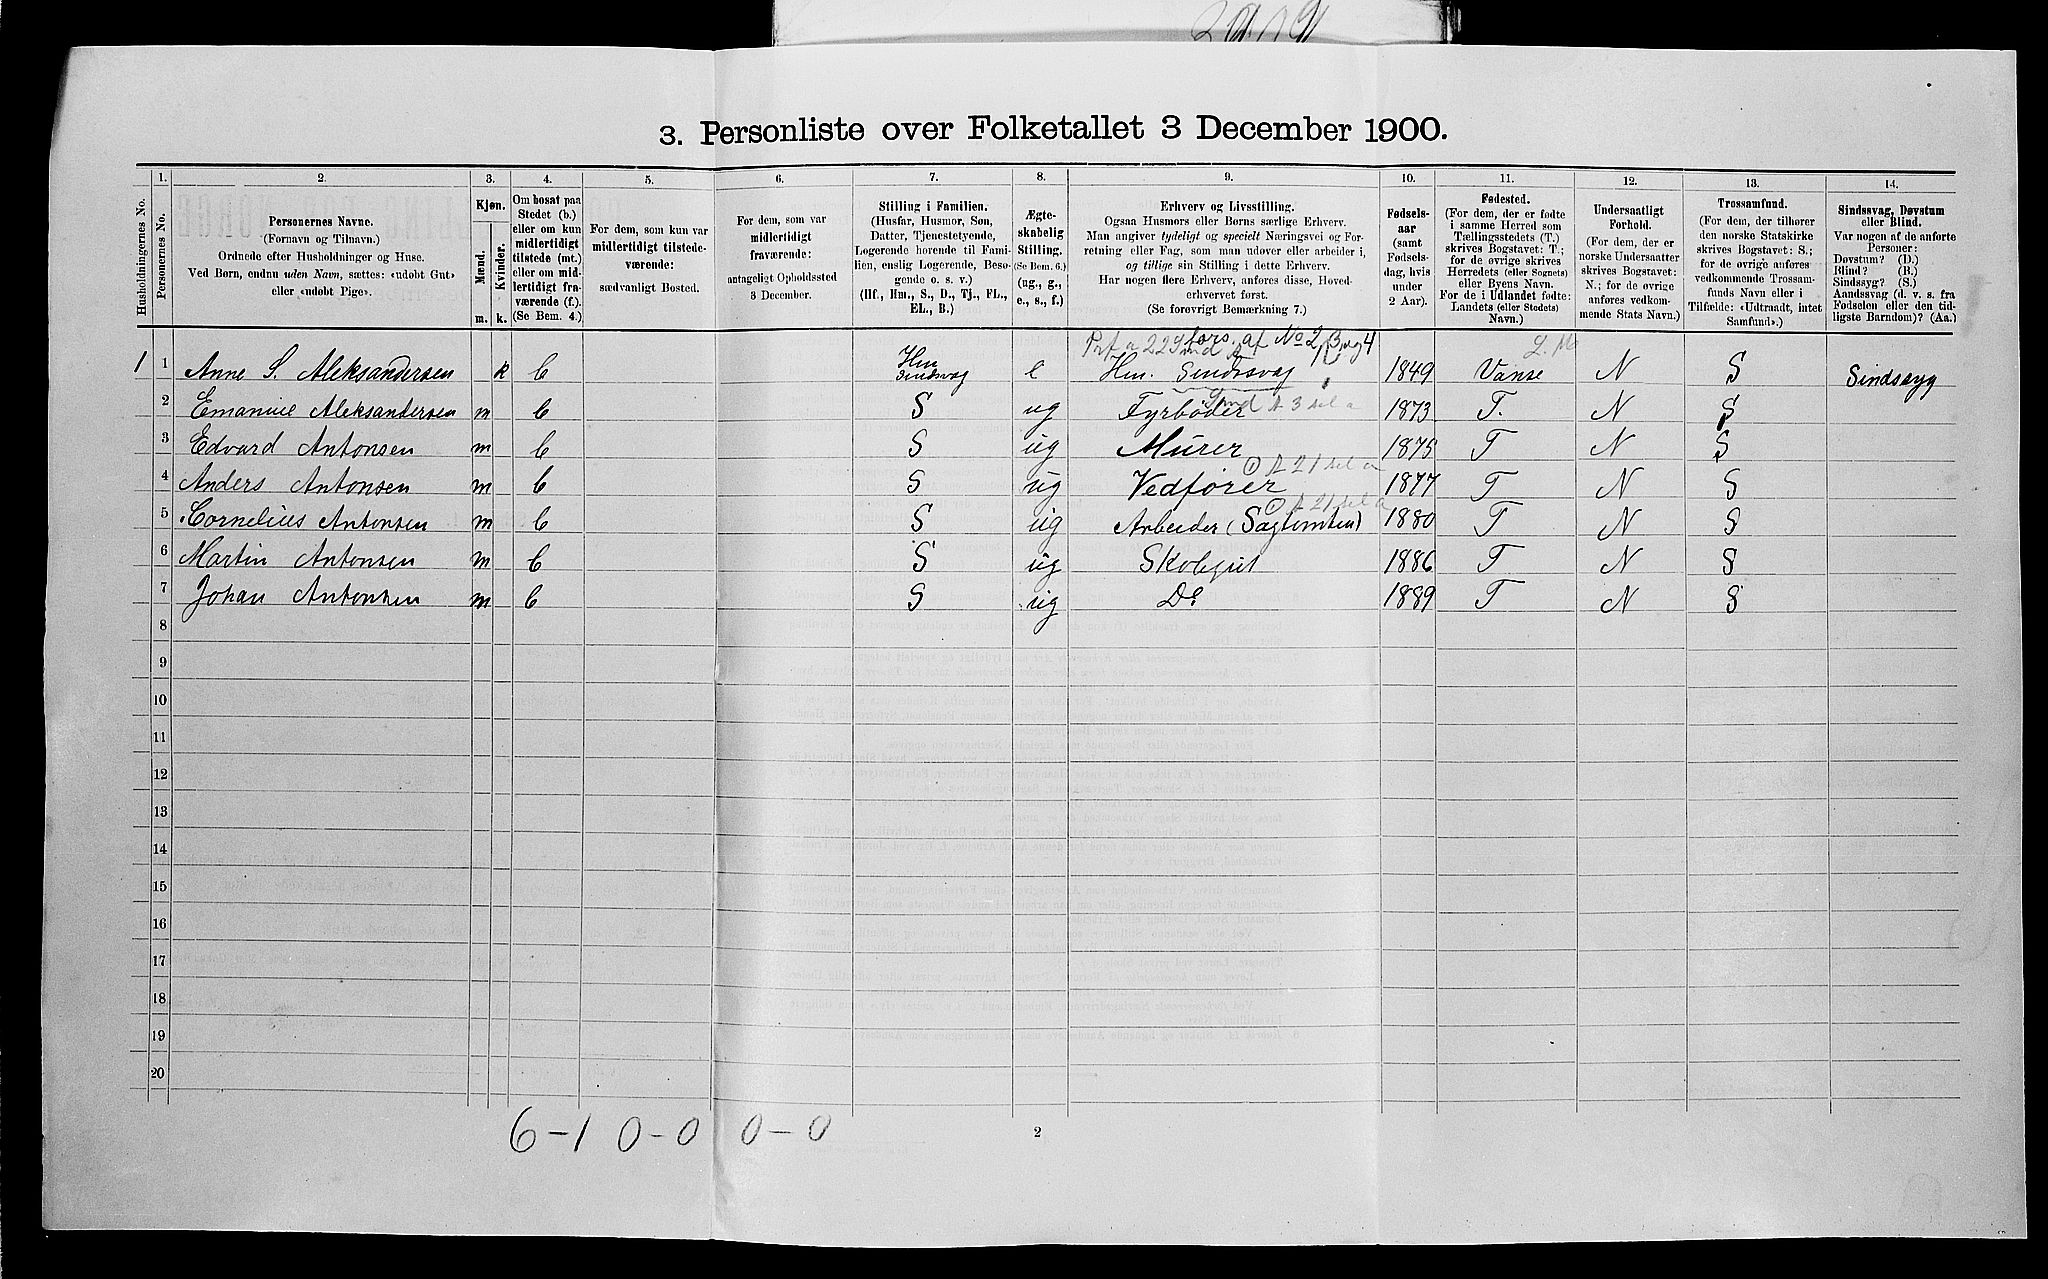 3. Personliste over Folketallet 3 December 1900.
Husholdningernes No.
1.
Personernes No.
2.
Personernes Navne.
(Fornavn og Tilnavn.)
Ordnede efter Husholdninger og Huse.
Ved Børn, endnu uden Navn, sættes: «udøbt Gut»
eller «udøbt Pige».
3.
Kjøn.
Mænd.
m.
Kvinder.
k.
4.
Om bosat paa
Stedet (b.)
eller om kun
midlertidigt
tilstede (mt.)
eller om mid-
lertidigt fra-
værende (f.).
(Se Bem. 4.)
5.
For dem, som kun var
midlertidigt tilstede-
værende:
sædvanligt Bosted.
6.
For dem, som var
midlertidigt
fraværende:
antageligt Opholdssted
3 December.
7.
Stilling i Familien.
(Husfar, Husmor, Søn,
Datter, Tjenestetyende,
Logerende hørende til Fami-
lien, enslig Logerende, Besø-
gende o. s. v.)
(Hf., Hm., S., D., Tj., FL.,
EL., B.)
8.
Ægte-
skabelig
Stilling.
(Se Bem. 6.)
(ug., g.,
e., s., f.)
9.
Erhverv og Livsstilling.
Ogsaa Husmors eller Børns særlige Erhverv.
Man angiver tydeligt og specielt Næringsvei og For-
retning eller Fag, som man udøver eller arbeider i,
og tillige sin Stilling i dette Erhverv.
Har nogen flere Erhverv, anføres disse, Hoved-
erhvervet først.
(Se forøvrigt Bemærkning 7.)
10.
Fødsels-
aar
(samt
Fødsels-
dag, hvis
under
2 Aar).
11.
Fødested.
(For dem, der er fødte
i samme Herred som
Tællingsstedets (T.)
skrives Bogstavet: T.;
for de øvrige skrives
Herredets (eller Sognets)
eller Byens Navn.
For de i Udlandet fødte:
Landets (eller Stedets)
Navn.)
12.
Undersaatligt
Forhold.
(For dem, der er
norske Undersaatter
skrives Bogstavet:
N.; for de øvrige
anføres vedkom-
mende Stats Navn.)
13.
Trossamfund.
(For dem, der tilhører
den norske Statskirke
skrives Bogstavet: S.;
for de øvrige anføres
vedkommende Trossam-
funds Navn eller i
Tilfælde: «Udtraadt, intet
Samfund».)
14.
Sindssvag, Døvstum
eller Blind.
Var nogen af de anførte
Personer:
Døvstum? (D.)
Blind? (B.)
Sindssyg? (S.)
Aandssvag (d. v. s. fra
Fødselen eller den tid-
ligste Barndom)? (Aa.)
fors. af No 2, 3, og 4
1 1 Anne S. Aleksandersen k b Hm Sindsvag e Hm. Sindssvag 1849 Vanse N S Sindssyg
2 Emanuel Aleksandersen m b S ug Fyrbøder 1873 T. N S
3 Edvard Antonsen m b S ug Murer 1875 T N S
4 Anders Antonsen m b S ug Vedfører 1877 T N S
5 Cornelius Antonsen m b S ug Arbeider (Sagtomten) 1880 T N S
6 Martin Antonsen m b S ug Skolegut 1886 T N S
7 Johan Antonsen m b S ug Do 1889 T N S
8
9
10
11
12
13
14
15
16
17
18
19
20
6-1 0-0 0-0
2